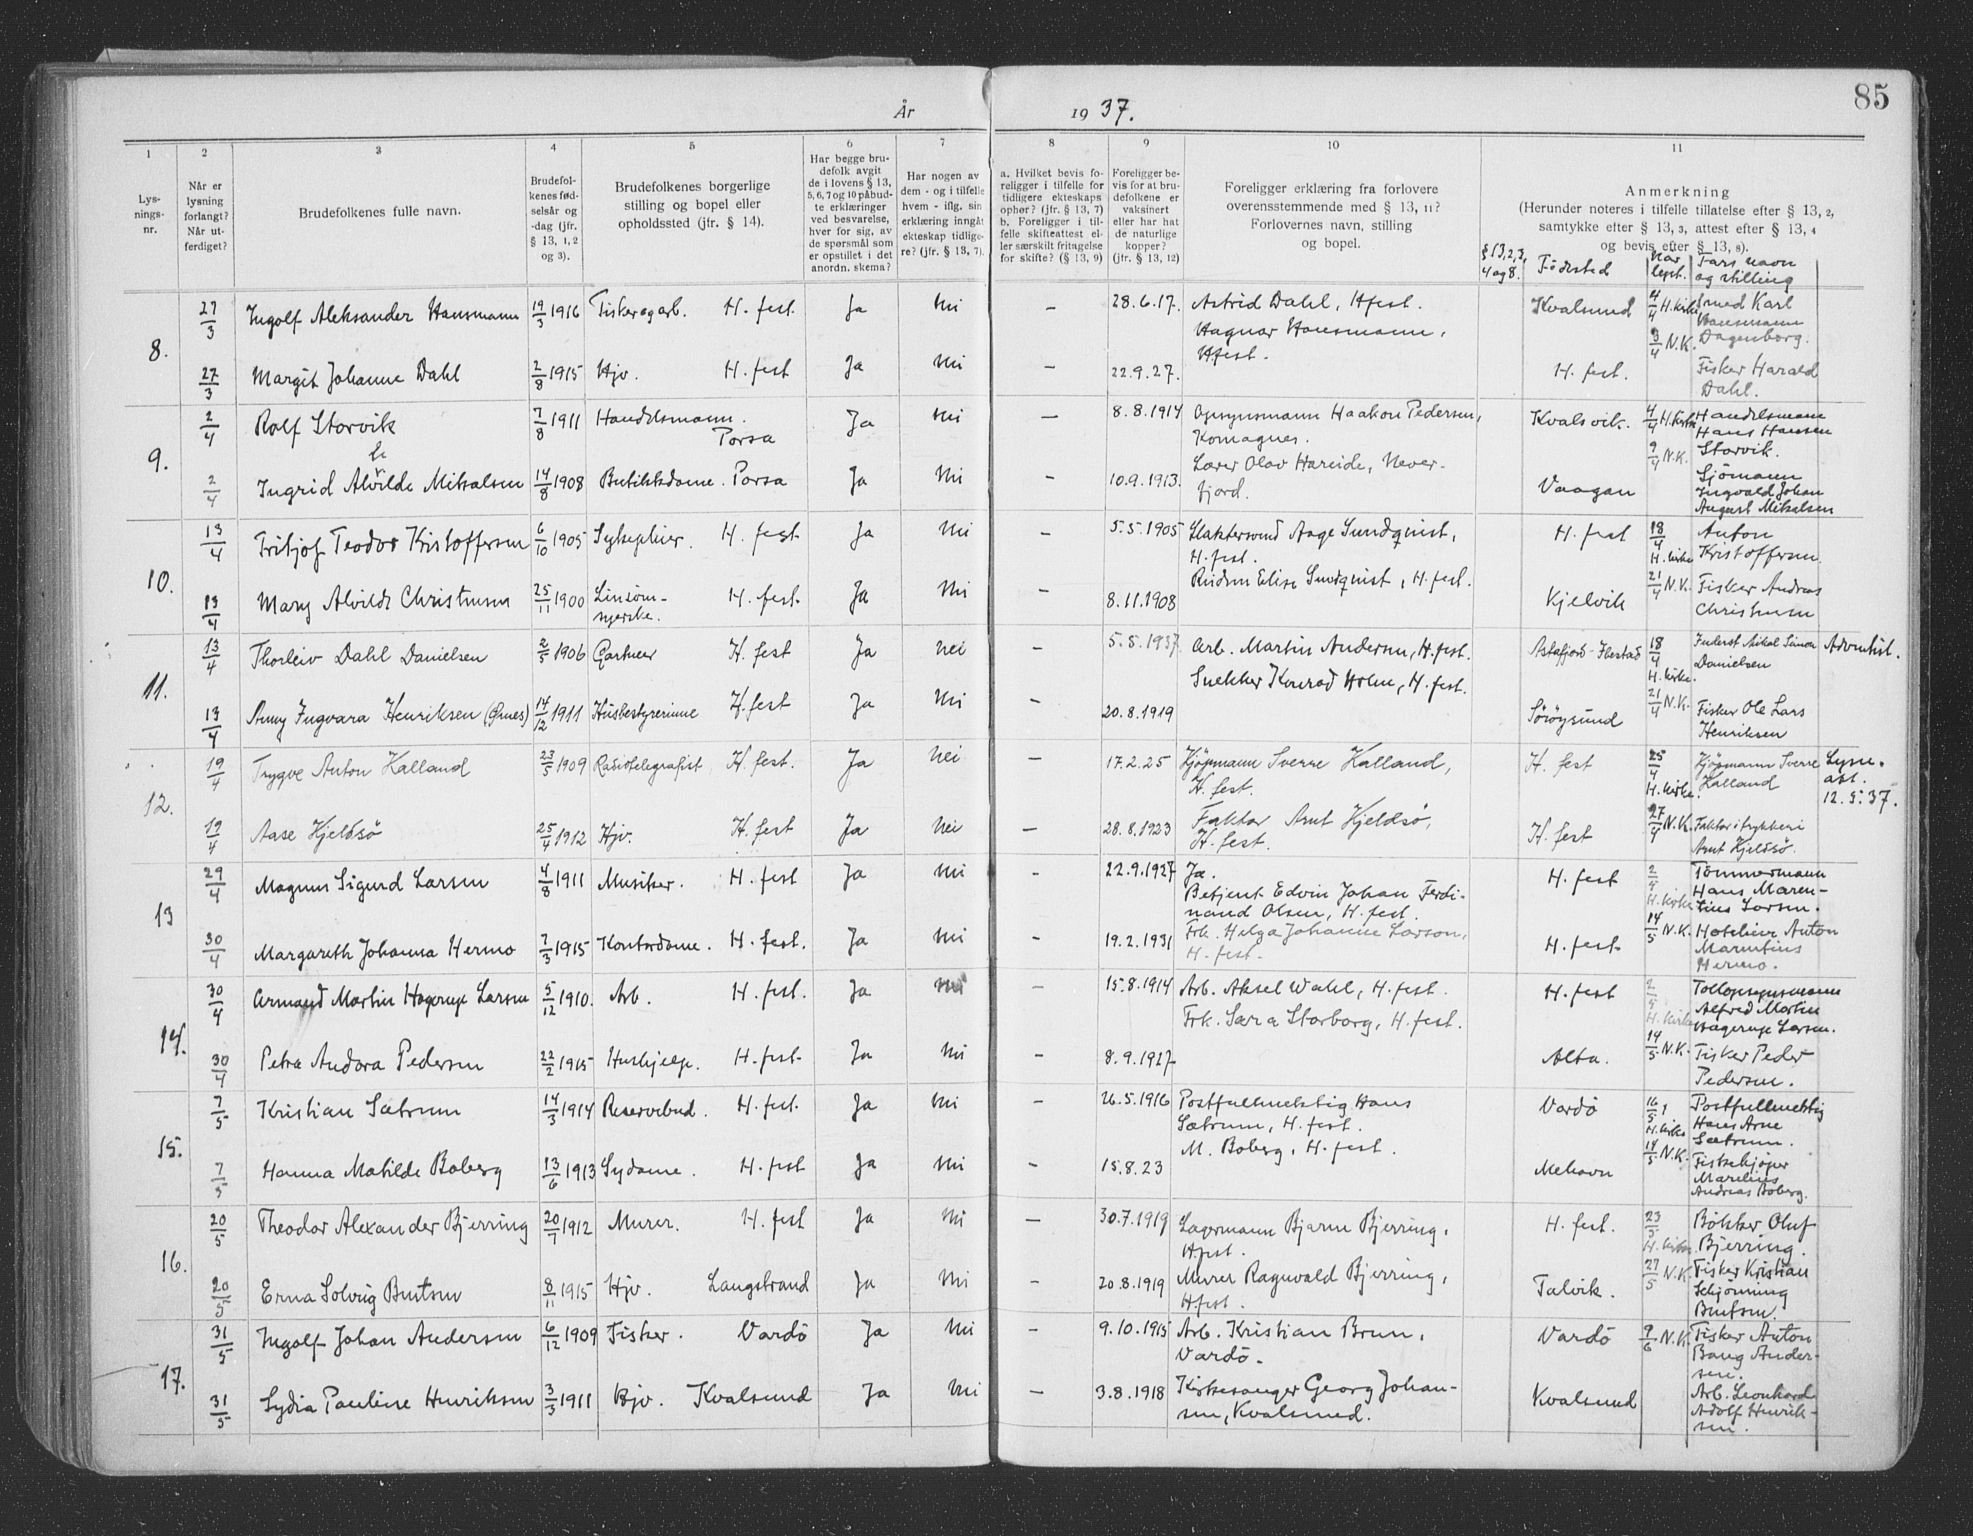 85
År 1937.
1 2 3 4 5 6 7 8 9 10 11
Lys-
nings-
nr.
Når er
lysning
forlangt?
Når ut-
ferdiget?
Brudefolkenes fulle navn.
Brudefol-
kenes fød-
selsår og
-dag (jfr.
§ 13, 1, 2
og 3).
Brudefolkenes borgerlige
stilling og bopel eller
opholdssted (jfr. § 14).
Har begge bru-
defolk avgit
de i lovens § 13,
5, 6, 7 og 10 påbud-
te erklæringer
ved besvarelse,
hver for sig, av
de spørsmål som
er opstillet i det
anordn. skema?
Har nogen av
dem - og i tilfelle
hvem - iflg. sin
erklæring inngått
ekteskap tidlige-
re? (jfr. § 13, 7).
a. Hvilket bevis fo-
religger i tilfelle for
tidligere ekteskaps
ophør? (jfr. § 13, 7)
b. Foreligger i til-
felle skifteattest el-
ler særskilt fritagelse
for skifte? (§ 13, 9)
Foreligger be-
vis for at bru-
defolkene er
vaksinert
eller har hat
de naturlige
kopper?
(jfr. § 13, 12)
Foreligger erklæring fra forlovere
overensstemmende med § 13, 11?
Forlovernes navn, stilling
og bopel.
Anmerkning
(Herunder noteres i tilfelle tillatelse efter § 13, 2,
samtykke efter § 13, 3, attest efter § 13, 4
og bevis efter § 13, 8).
§ 13, 2, 3, 4 og 8. Fødested Når lyst. Fars navn og stilling
8.
27/3 Ingolf Aleksander Hansmann 19/3 1916 Fisker og arb. H. fest. Ja Nei — 28.6.17. Astrid Dahl, Hfest. Kvalsund 4/4 H. kirke Smed Karl
Hagnar Hansmann, Hansmann
Hfest. 9/4 N.K. Dagenborg.
27/3 Margit Johanne Dahl 2/8 1915 Hjv. H. fest Ja Nei — 22.9.27. H. fest. Fisker Harald
Dahl.
9.
2/4 Rolf Storvik 7/8 1911 Handelsmann. Porsa Ja Nei — 8.8.1914 Opsynsmann Haakon Pedersen, Kvalsvik. 4/4 H. kirke Handelsmann
Komagnes. Hans Hansen
Lærer Olav Hareide, Never- 9/4 N.K. Storvik.
2/4 Ingrid Alvilde Mikalsen 14/8 1908 Butikkdame. Porsa Ja Nei — 10.9.1913. fjord. Vaagan Sjömann
Ingvald Johan
August Mikalsen
10.
13/4 Fritjof Teodor Kristoffersen 6/10 1905 Sykepleier. H. fest Ja Nei — 5.5.1905 Slaktersvend Aage Sundquist, H. fest 18/4 H. kirke Anton
H. fest. Kristoffersen.
13/4 Mary Alvilde Christensen 25/11 1900 Linsöm- H. fest. Ja Nei — 8.11.1908 Elise Sundquist, H. fest. Kjelvik 21/4 N.K. Fisker Andreas
nyerske. Christensen
11.
13/4 Thorleiv Dahl Danielsen 2/5 1906 Gartner H. fest Ja Nei 5.5.1937. Arb. Martin Andersen, H. fest. Astafjord-Ibestad 18/4 H. kirke. Mikal Simon Adventist.
Danielsen
Snekker Konrad Holm, H. fest.
13/4 Anny Ingvara Henriksen (Ørnes) 14/12 1911 Husbestyrerinne H. fest Ja Nei — 20.8.1919 Sörøysund 21/4 N.K. Fisker Ole Lars
Henriksen
12.
19/4 Trygve Anton Kalland 23/5 1909 Radiotelegrafist H. fest. Ja Nei — 17.2.25 Kjøpmann Sverre Kalland, H. fest 25/4 H. kirke. Kjøpmann Sverre Lysn.
H. fest. Kalland att.
12.5.37.
19/4 Aase Hjeldsø 25/4 1912 Hjv. H. fest Ja Nei — 28.8.1923 Faktor Arnt Hjeldsø, H. fest 27/4 N.K. Faktor i trykkeri
H. fest. Arnt Hjeldsø.
13
29/4 Magnus Sigurd Larsen 4/8 1911 Musiker. H. fest Ja Nei — 22.9.1927 Ja. H. fest 2/5 H. kirke Tömmermann
Betjent Edvin Johan Ferdi- Hans Maren-
nand Olsen, H. fest. tius Larsen.
30/4 Margareth Johanna Hermo 7/3 1915 Kontordame. H. fest. Ja Nei — 19.2.1931 Frk. Helga Johanne Larson, H. fest 14/5 N.K. Hoteleier Anton
H. fest. Marentius
Hermo.
14.
30/4 Armand Martin Hagerup Larsen 5/12 1910. Arb. H. fest. Ja Nei — 15.8.1914 Arb. Aksel Wahl, H. fest. H. fest 2/5 H. kirke Tollopsynsmann
Frk. Sara Storborg, H. fest. Alfred Martin
Hagerup Larsen.
30/4 Petra Andora Pedersen 22/2 1915 Hushjelp. H. fest. Ja Nei — 8.9.1927 Alta. 14/5 N.K. Fisker Peder
Pedersen.
15.
7/5 Kristian Sætrum 14/3 1914 Reservebud. H. fest. Ja Nei — 26.5.1916 Postfullmektig Hans Vardö 16/5 H. kirke Postfullmektig
Sætrum, H. fest. Hans Arne
M. Boberg, H. fest. Sætrum.
7/5 Hanna Matilde Boberg 13/6 1913 Sydame. H. fest Ja Nei — 15.8.23 Mehavn 14/5 N.K. Fiskekjöper
Marelius
Andreas Boberg.
16.
20/5 Theodor Alexander Bjerring 20/1 1912 Murer. H. fest Ja Nei — 30.7.1919 Lagermann Bjarne Bjerring, H. fest. 23/5 H. kirke. Bökker Oluf
Hfest. Bjerring.
20/5 Erna Solveig Bentsen 8/11 1915 Hjv. Langstrand Ja Nei — 20.8.1919 Murer Ragnvald Bjerring, Talvik. 27/5 N.K. Fisker Kristian
Hfest. Schjönning
Bentsen.
17.
31/5 Ingolf Johan Andersen 6/12 1909 Fisker. Vardö Ja Nei — 9.10.1915 Arb. Kristian Brun, Vardö 9/6 N.K. Fisker Anton
Vardö. Bang Ander-
sen.
31/5 Lydia Pauline Henriksen 3/3 1911 Hjv. Kvalsund Ja Nei — 3.8.1918 Kirkesanger Georg Johan- Kvalsund Arb. Leonhard
sen, Kvalsund. Adolf Henrik-
sen.